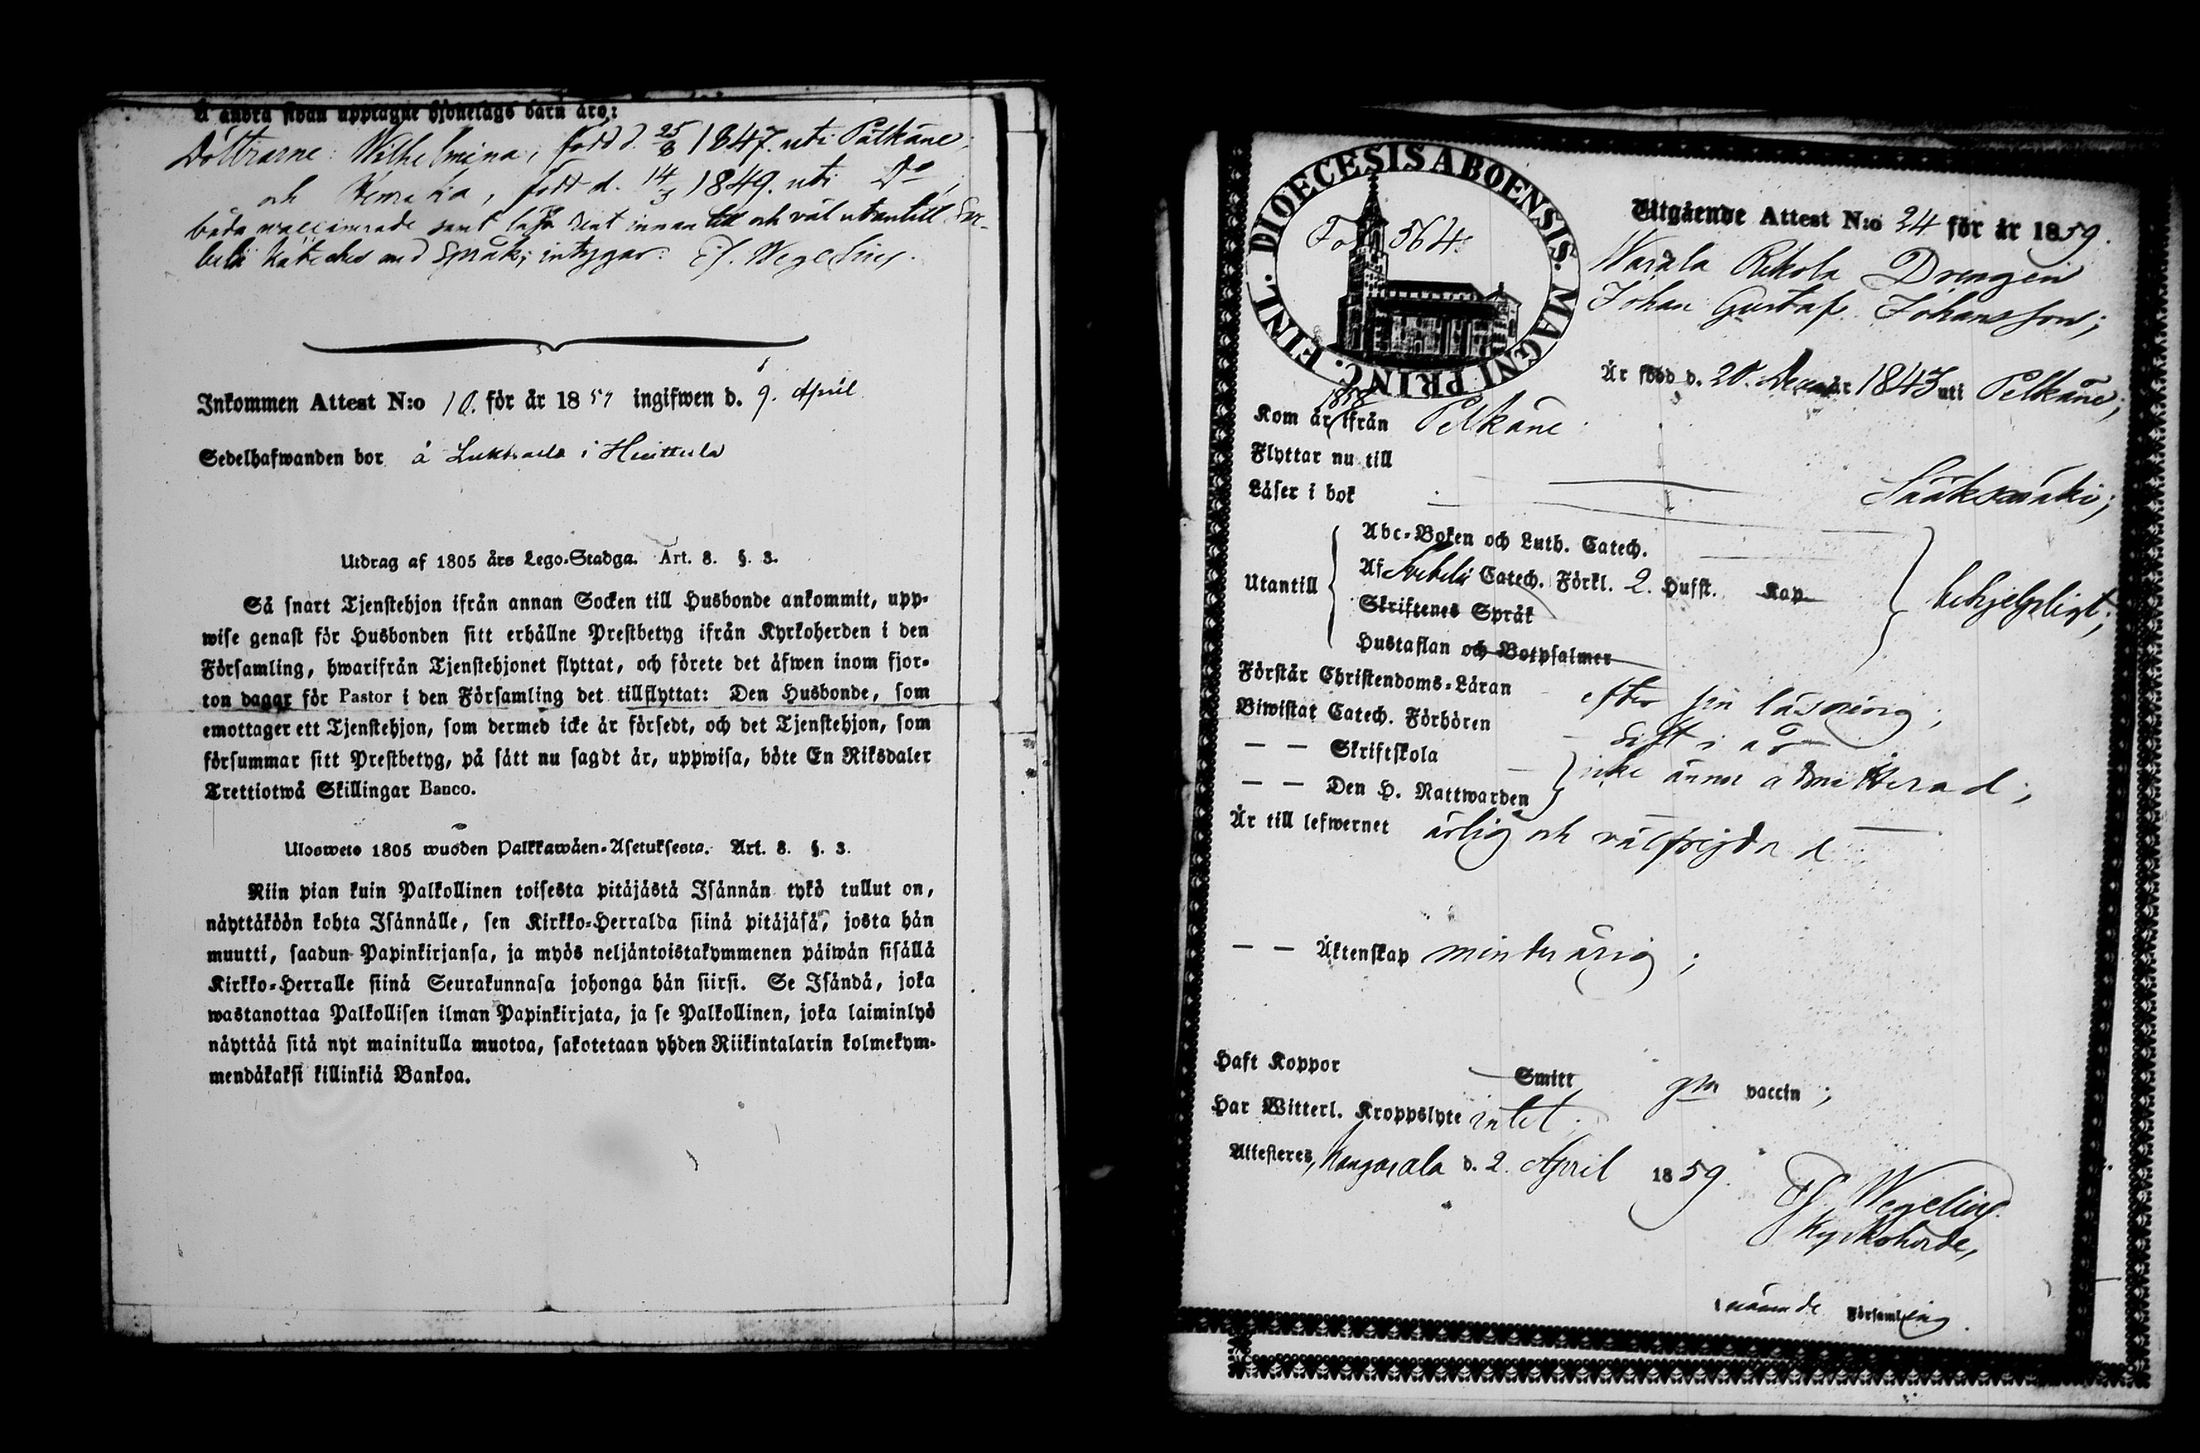 å andra sidan upptagne hjonelags barn äro:
Döttrarne: Wilhelmina, född d. 25/8 1847. uti Pälkäne,
och Henrika, född d. 14/3 1849. uti Do,
båda vaccinerade samt läsa rent innantill och väl utantill Sve-
belii Kateches med Språk; intygar: Wegelius.
Inkommen Attest N:o 10. för år 1859 ingifwen d. 9. April
Sedelhafwanden bor å i Huittula
Utdrag af 1805 års Lego-Stadga. Art. 8. §. 3.
Så snart Tjenstehjon ifrån annan Socken till Husbonde ankommit, upp-
wise genast för Husbonden sitt erhållne Prestbetyg ifrån Kyrkoherden i den
Församling, hwarifrån Tjenstehjonet flyttat, och förete det äfwen inom fjor-
ton dagar för Pastor i den Församling det tillflyttat: Den Husbonde, som
emottager ett Tjenstehjon, som dermed icke är försedt, och det Tjenstehjon, som
försummar sitt Prestbetyg, på sätt nu sagdt är, uppwisa, böte En Riksdaler
Trettiotwå Skillingar Banco.
Uloswete 1805 wuoden Palkkawäen-Asetuksesta. Art. 8. §. 3.
Niin pian kuin Palkollinen toisesta pitäjästä Isännän tykö tullut on,
näyttäköön kohta Isännälle, sen Kirkko-Herralda siinä pitäjäsä, josta hän
muutti, saadun Papinkirjansa, ja myös neljäntoistakymmenen päiwän sisällä
Kirkko-Herralle siinä Seurakunnasa johonga hän siirsi. Se Isändä, joka
wastanottaa Palkollisen ilman Papinkirjata, ja se Palkollinen, joka laiminlyö
näyttää sitä nyt mainitulla muotoa, sakotetaan yhden Riikintalarin kolmekym-
mendäkaksi killinkiä Bankoa.
DIOECESIS ABOENSIS. MAGNI PRINC. FINL.
Fol 564.
Utgående Attest N:o 24 för år 1859.
Warala Rikola Drengen
Johan Gustaf Johansson;
Är född d. 20. Decemb år 1843 uti Pelkäne;
Kom år 1858 ifrån Pelkäne
Flyttar nu till Sääksmäki;
Läser i bok
Utantill
Abc-Boken och Luth. Catech.
Af Svebelii Catech. Förkl. 2. Hufst. Kap
Skriftenes Språk
Hustaflan och Botpsalmer
behjelpligt;
Förstår Christendoms-Läran efter sin läsning;
Biwistat Catech. Förhören sist i år
— — Skriftskola
— — Den H. Nattwarden
icke ännu admitterad;
Är till lefwernet ärlig och välfrejdad
— — Äktenskap minderårig;
Haft Koppor Smitt gm vaccin;
Har Witterl. Kroppslyte intet.
Attesteres, Kangasala d. 2. April 1859.
Wegelius.
Kyrkoherde,
i nämnde Församling.